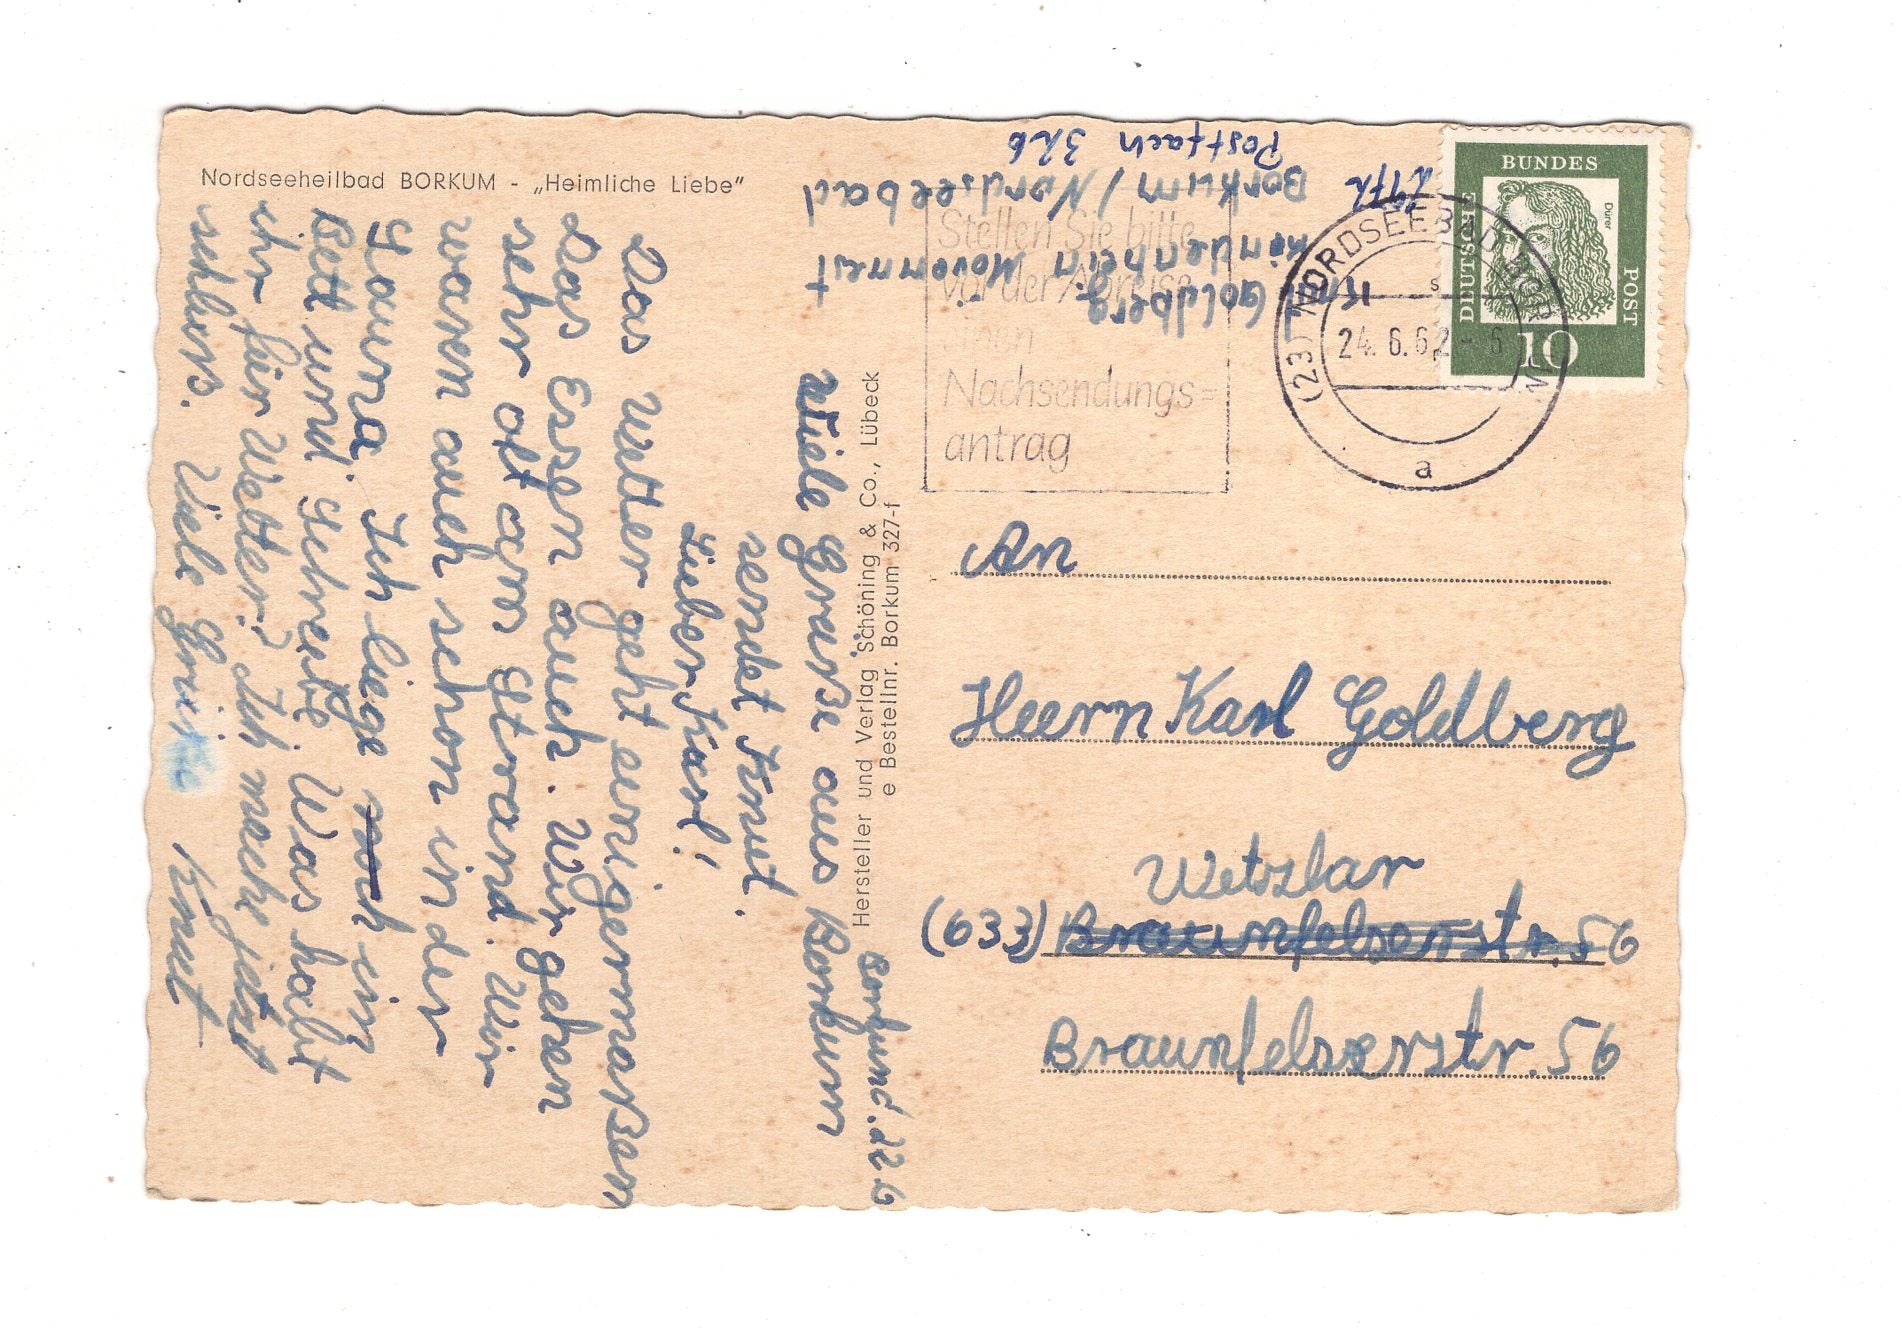 Nordseeheilbad BORKUM - „Heimliche Liebe"
Borkum d. 22. 6
Viele Grüße aus Borkum
sendet Knut.
Lieber Karl!
Das Wetter geht einigermaßen
Das Essen auch. Wir gehen
sehr oft am Strand. Wir
waren auch schon in der
Sauna. Ich liege in
Bett und schreibe. Was habt
ihr für Wetter? Ich mache jetzt
schluss. Viele Grüße
Knut
Hersteller und Verlag Schöning & Co., Lübeck
e Bestellnr. Borkum 327-f
Knut Goldberg
Kinderheim Möwennest
2972
Borkum/Nordseebad
Postfach 326
Stellen Sie bitte
vor der Abreise
einen
Nachsendungs=
antrag
(23) NORDSEEBAD BORKUM
24.6.62-6
a
DEUTSCHE
BUNDES
POST
Dürer
10
An
Heern Karl Goldberg
Wetzlar
(633) Braunfelserstr. 56
Braunfelserstr. 56